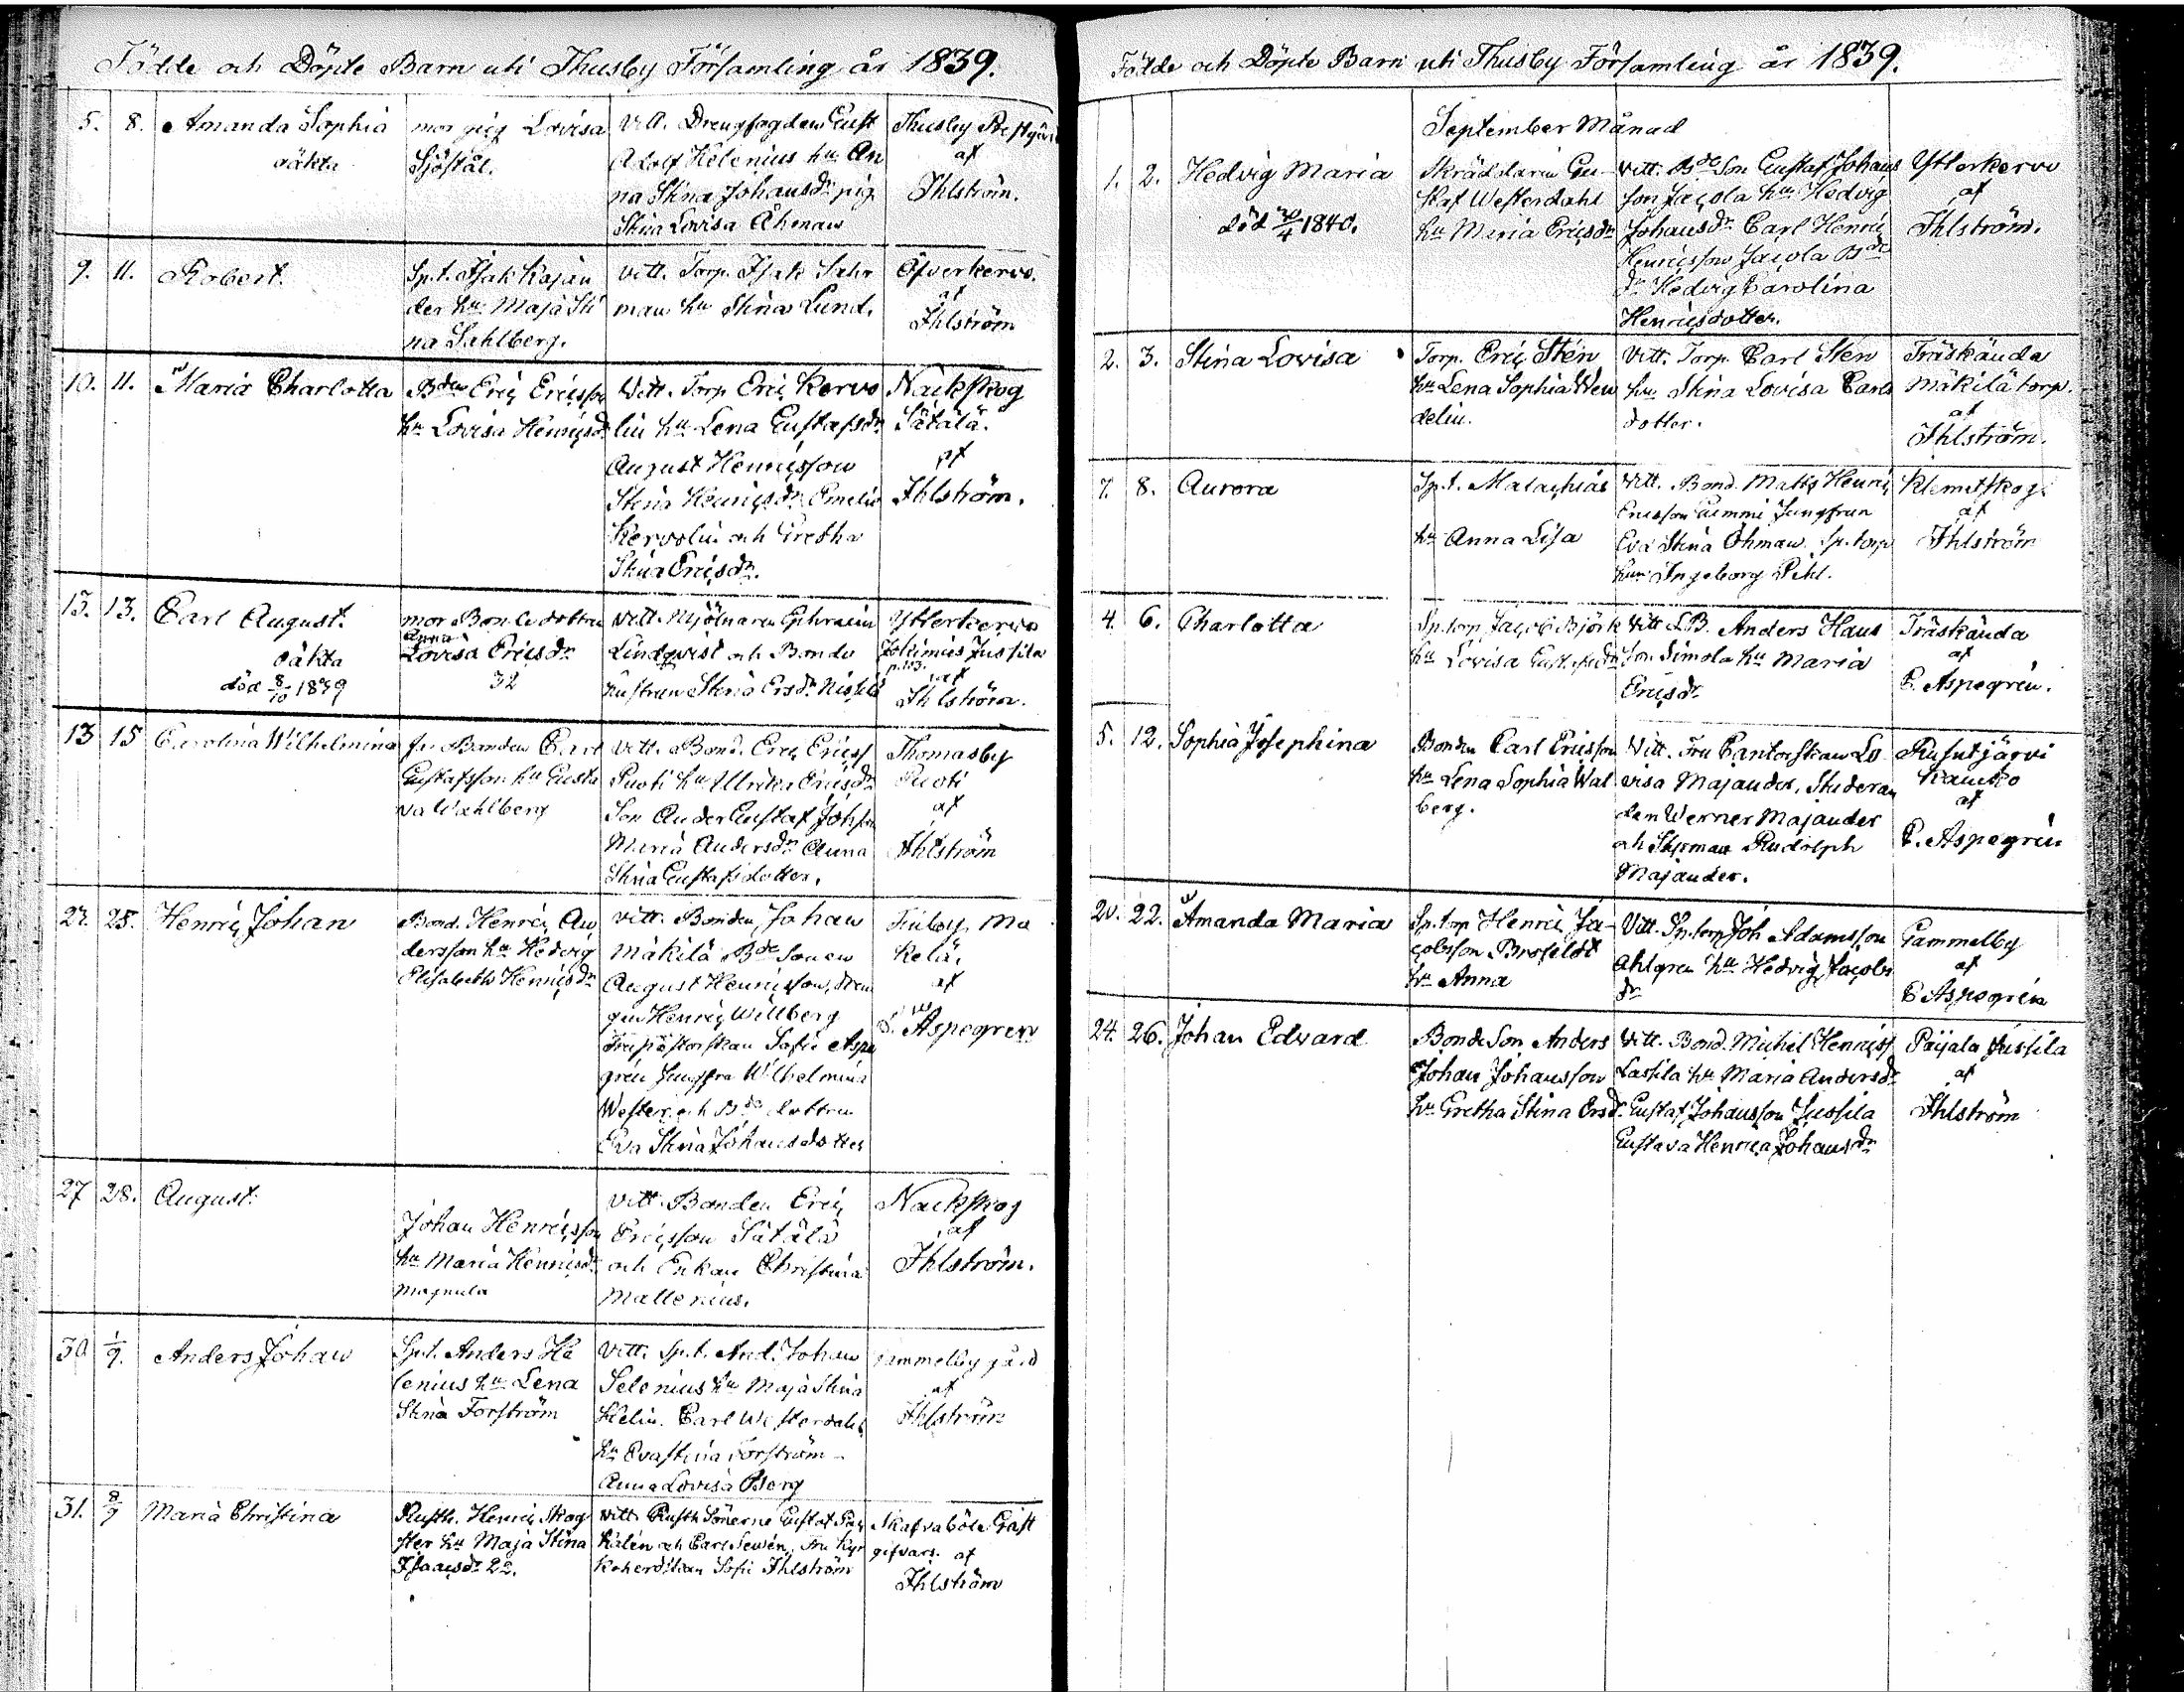 Födde och Döpte Barn uti Thusby Församling år 1839.
5. 8. Amanda Sophia
oäkta
mor pig Lovisa
Sjöstål.
Vitt. Drengfogden Gust
Adolf Helenius hu An
na Stina Johansdr pig
Stina Lovisa Öhman
Thusby
af
Ihlström.
9. 11. Robert.
Sp.t. Isak Kajan
der hu Maja Sti
na Sahlberg.
vitt. Torp. Isak Sahr
man hu Stina Lund.
Öfverkervo.
af
Ihlström
10. 11. Maria Charlotta
Bden Eric Ericsson
hu Lovisa Henricsdr
Vitt. Torp Eric Kervo
lin hu Lena Gustafsdr
August Henricsson
Stina Henricsdr Emelie
Kervolin och Gretha
Stina Ericsdr.
Nackskog
Sätälä.
af
Ihlström.
13. 13. Carl August.
oäkta
död 8/10 1839
mor Bondedottren
Anna
Lovisa Ericsdr
32
vitt. Mjölnaren Ephraim
Lindqvist och Bonde
hustrun Stina Ersdr Nissilä
Ytterkervo
Jussila
p. 103.
af
Ihlström.
13 15 Carolina Wilhelmina
fr Bonden Carl
Gustafsson hu Gusta
va Wahlberg
vitt. Bond. Eric Ericss
Puoti hu Ulrika Ericsdr
Son Ander Gustaf Johsson
Maria Andersdr Anna
Stina Gustafsdotter.
Thomasby
Puoti
af
Ihlström
25. Henric Johan
Bond. Henric An
dersson hu Hedvig
Elisabeth Henricsdr
vitt. Bonden Johan
Mäkilä Bde Sonen
August Henricsson, dren
gen Henric Willberg
Fru pastorskan Sofie Aspe
grén Jungfru Wilhelmina
Wester och Bde dottren
Eva Stina Johansdotter
Finby Mä
kelä.
af
Aspegren
27 28. August.
Johan Henricsson
hu Maria Henricsdr
Magnula
vitt. Bonden Eric
Ericsson Sätälä
och Enkan Christina
Mallenius.
Nackskog
af
Ihlström.
30 1/9. Anders Johan
Sp.t. Anders He
lenius hu Lena
Stina Forström
vitt. Sp.t. And. Johan
Selenius hu Maja Stina
Helin. Carl Westerdahl
hu Eva Stina Forström
Anna Lovisa Berg
Gammelby gård
af
Ihlström
31. 8/9 Maria Christina
Rusth. Henric Skog
ster hu Maja Stina
Isaacsdr 22.
vitt. Rusth Sönerne Gustaf
och Carl Fru Kyr
koherdskan Sofie Ihlström
Skafvaböle Gäst
gifvars. af
Ihlström
Födde och Döpte Barn uti Thusby Församling år 1839.
September Månad
1. 2. Hedvig Maria
död 30/4 1840.
Skräddaren Gu-
staf Westerdahl
hu Maria Ericsdr
vitt. Bde Son Gustaf Johans
son Jacola hu Hedvig
Johansdr Carl Henric
Henricsson Jacola Bde
dr Hedvig Carolina
Henricsdotter.
Ytterkervo
af
Ihlström.
2. 3. Stina Lovisa
Torp. Eric Stén
hu Lena Sophia Wen
delin.
Vitt. Torp Carl Stén
hu Stina Lovisa Carls
dotter.
Träskända
Mäkilä torp.
af
Ihlström.
7. 8. Aurora
Sp.t. Malachias
hu Anna Lisa
Vitt. Bond. Matts Henric
Ericsson Jungfrun
Eva Stina Öhman. Sp. torp
hun Ingeborg Pihl.
Klemetskog.
af
Ihlström
4. 6. Charlotta
Sp. torp Jacob Björk
hu Lovisa Gustafsdr
Vitt. Anders Hans
son Simola hu Maria
Ericsdr
Träskända
af
C. Aspegrén.
5. 12. Sophia Josephina
Bonden Carl Ericsson
hu Lena Sophia Wal
berg.
Vitt. Fru Cantorskan Lo
visa Majander, Studeran
den Werner Majander
och Rudolph
Majander.
Rusutjärvi
af
C. Aspegrén
20. 22. Amanda Maria
Sp. torp Henric Ja-
cobsson Brofeldt
hu Anna
Vitt. Sp. torp Joh Adamsson
Ahlgren hu Hedvig Jacobs
dr
Gammelby
af
C Aspegrén
24. 26. Johan Edvard
Bonde Son Anders
Johan Johansson
hu Gretha Stina Ersdr.
Vitt. Bond. Michel Henricss
Lassila hu Maria Andersdr
Gustaf Johansson Jussila
Gustava Henrica Johansdr
Paijala Jussila
af
Ihlström